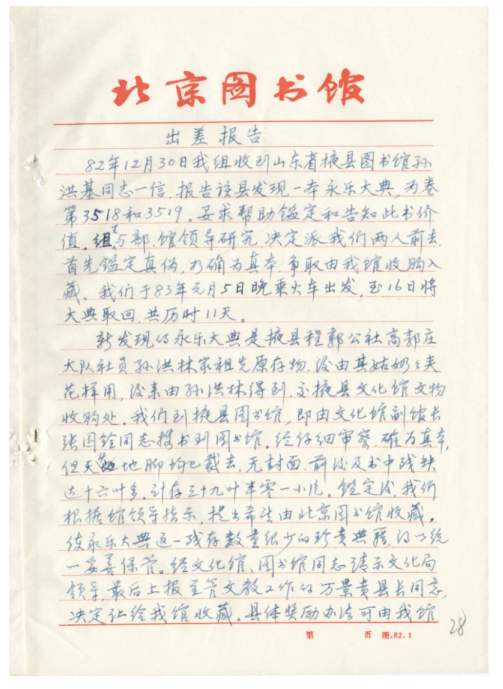 北京图书馆
出差报告
82年12月30日我组收到山东省掖县图书馆孙
洪基同志一信,报告该县发现一本永乐大典,为卷
第3518和3519。要求帮助鉴定和告知此书价
值。组与部、馆领导研究,决定派我们两人前去
首先鉴定真伪,如确为真本,争取由我馆收购入
藏。我们于83年元月5日晚乘火车出发,至16日将
大典取回,共历时11天。
新发现的永乐大典是掖县程郭公社高郭庄
大队社员孙洪林家祖先原存物,后由其姑奶奶夹
花样用,后来由孙洪林得到,交掖县文化馆文物
收购处。我们到掖县图书馆,即由文化馆副馆长
张国铨同志携书到图书馆,经仔细审察,确为真本,
但天头地脚均已裁去,无封面,前后及书中残缺
达十六叶多,计存三十九叶半零一小片。鉴定后我们
根据馆领导指示,提出希望由北京图书馆收藏。
使永乐大典这一残存数量很少的珍贵典籍得以统
一妥善保管。经文化馆、图书馆同志请示文化局
领导,最后上报主管文教工作的万景贵县长同志,
决定让给我馆收藏。具体奖励办法可由我馆
第 页 图.82.1
28